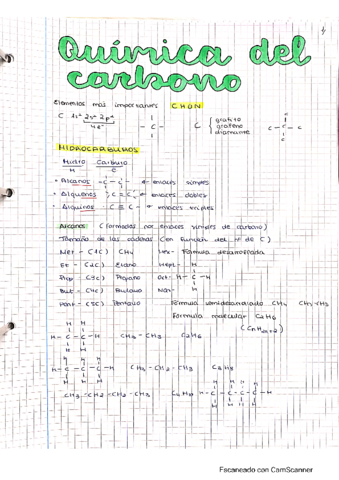 Química del
carbono
Elementos más importantes CHON
C 1s² 2s² 2p²
4e⁻
- C -
C { grafito
grafeno
diamante
C - C - C
HIDROCARBUROS
Hidro Carburo
H C
Alcanos -C-C- → enlaces simples
Alquenos C=C → enlaces dobles
Alquinos -C≡C- → enlaces triples
Alcanos (formados por enlaces simples de carbono)
Tamaño de las cadenas (en función del nº de C)
Met - (1C) CH₄ Hex- Fórmula desarrollada
Et - (2C) Etano Hept- H
Prop - (3C) Propano Oct- H-C-H
But - (4C) Butano Non- H
Pent - (5C) Pentano Fórmula semidesarrollada CH₄ CH₃-CH₃
Fórmula molecular C₂H₆
(CₙH₂ₙ₊₂)
H H
H-C-C-H CH₃-CH₃ C₂H₆
H H
H H H
H-C-C-C-H CH₃-CH₂-CH₃ C₃H₈
H H H
H H H H
CH₃-CH₂-CH₂-CH₃ C₄H₁₀ H-C-C-C-C-H
H H H H
Escaneado con CamScanner